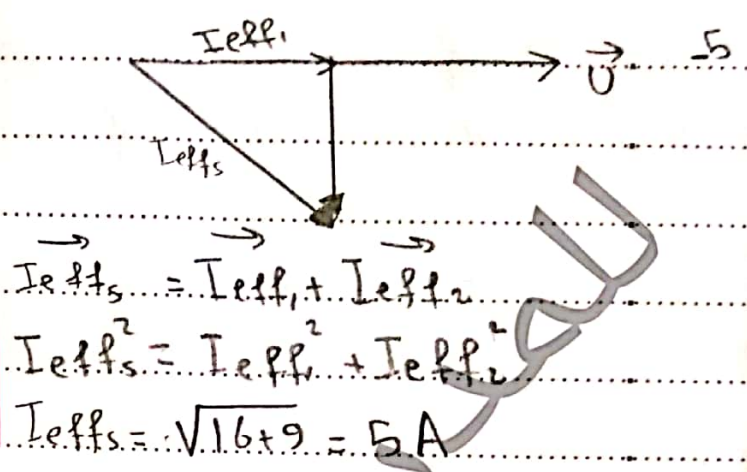 Ieff₁
U⃗ -5
Ieffs
I⃗effs = I⃗eff₁ + I⃗eff₂
Ieffs² = Ieff₁² + Ieff₂²
Ieffs = √16+9 = 5A